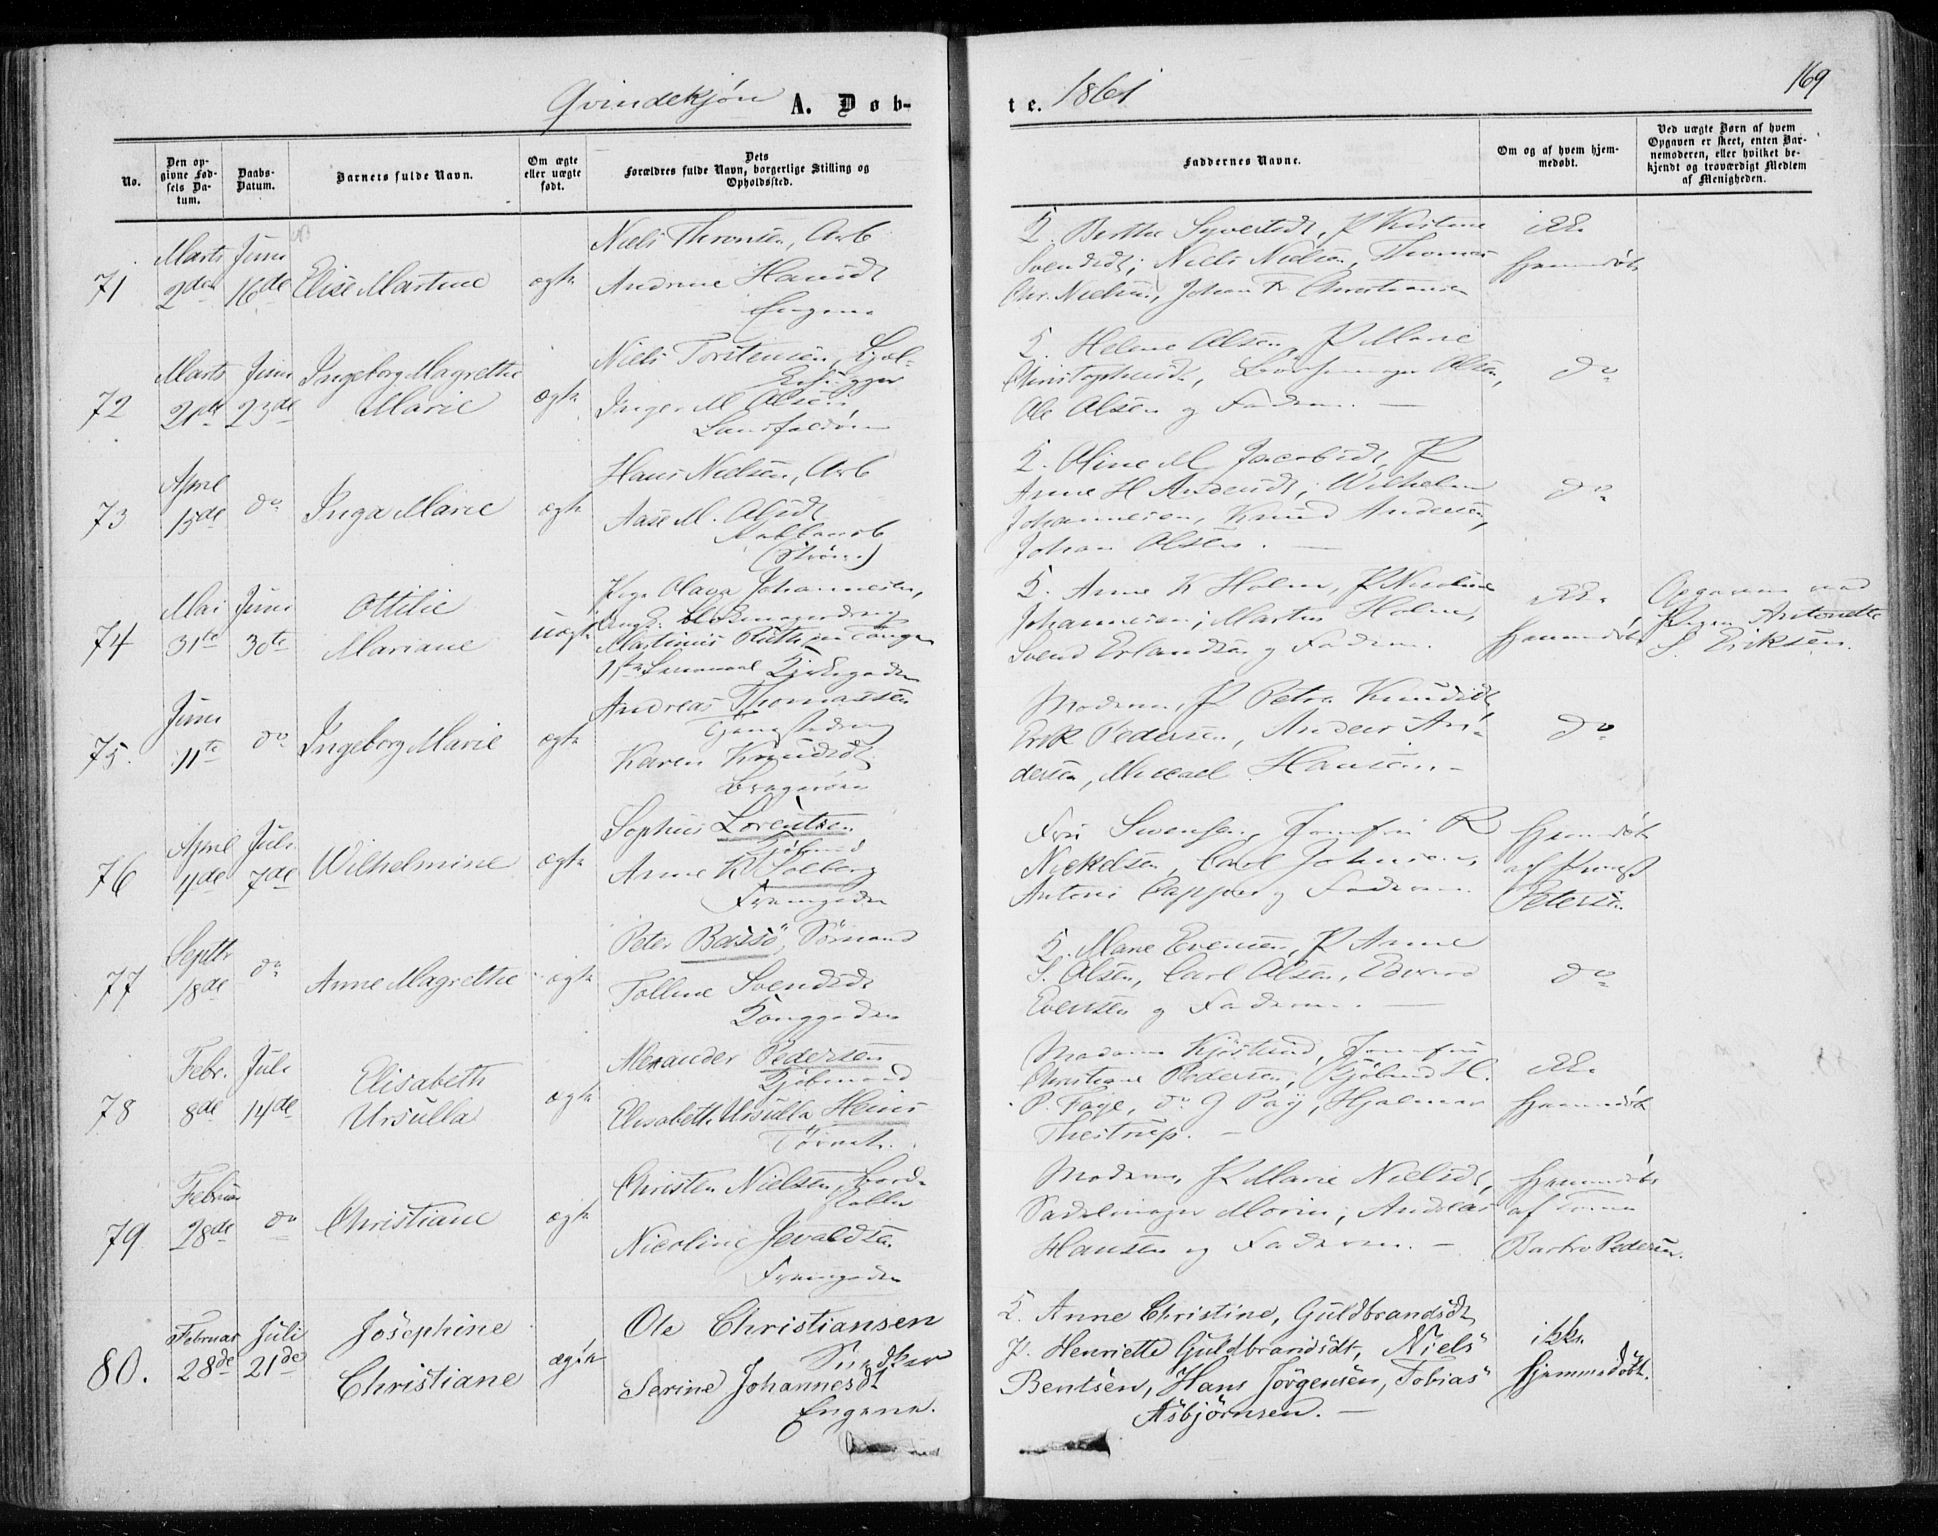 Qvindekjøn A. Døb-
te. 1861
169
No.
Den op-
givne Fød-
sels Da-
tum.
Daabs-
Datum.
Barnets fulde Navn.
Om ægte
eller uægte
født.
Dets
Forældres fulde Navn, borgerlige Stilling og
Opholdssted.
Faddernes Navne.
Om og af hvem hjem-
medøbt.
Ved uægte Børn af hvem
Opgaven er skeet, enten Bar-
nemoderen, eller hvilket be-
kjendt og troværdigt Medlem
af Menigheden.
71
Marts
2den
Juni
16de
Elise Martine
ægte
Niels Thronsen, Arb
Andrine Hansdt
Engene
K. Berthe Syvertsdt, P Kistine
Svendsdt, Niels Nielsen, Thomas
Chr. Nielsen, Johan Fr Christiansen
ikke
hjemmedøbt
72
Marts
21de
Juni
23de
Ingeborg Magrethe
Marie
ægte
Niels Torstensen,
Inger M Olsen
Landfaldøen
K. Helene Olsen, P Marie
Christophersdt, Olsen,
Ole Olsen og Faderen. —
do
73
April
15de
do
Inga Marie
ægte
Hans Nielsen, Arb
Aase M. Olsdt
(Strømsø)
K. Oline M Jacobsdt, P
Anne H Andersdt, Wilhelm
Johannesen, Knud Andersen,
Johan Olsen. —
do
74
Mai
31te
Juni
30te
Ottilie
Mariane
uægte
Pige Olava Johannesen,
Ungk. Blokmagerdreng
Martinius Ruth
1ste Leiermaal Kirkegaden
K. Anne K Holm, P Nicoline
Johannesen, Martin Holm,
Svend Erlandsen og Faderen.
ikke
hjemmedøbt
Opgaven ved
Pigen Antonette
S. Eriksen.
75.
Juni
11te
do
Ingeborg Marie
ægte
Andreas Thomassen
Karen Knudsdt
Bragernæs
Moderen, P Petra Knudsdt,
Erik Pedersen, Anders An-
dersen, Micael Hansen. —
do
76
April
4de
Juli
7de
Wilhelmine
ægte
Sophus Lorentsen
Kjøbmd
Anne K Solberg
Fremgaden
Fru Svensen, Jomfru R
Nickelsen, Carl Johnsen,
Antoni Cappelen og Faderen.
hjemmedøbt
af
Petersen.
77
Septbr
18de
do
Anne Magrethe
ægte
Peter Bassø, Sømand
Tolline Svendsdt
Konggaden
K. Marie Evensen, P Anne
S. Olsen, Carl Olsen, Edvard
Evensen og Faderen. —
do
78
Febr.
8de
Juli
14de
Elisabeth
Ursulla
ægte
Alexander Pedersen
Kjøbmand
Elisabeth Ursulla Heins
Madame Kjøstrud, Jomfru
Christiane Pedersen, Kjøbmd H.
P. Faye, do J Pay, Hjalmar
Thestrup. —
ikke
hjemmedøbt
79
Februar
28de
do
Christiane
ægte
Christen Nielsen,
Nicoline Jevaldsen
Fremgaden
Moderen, P Marie Nielsdt,
Sadelmager Morin, Andreas
Hansen og Faderen. —
hjemmedøbt
af
Barbro Pedersen.
80.
Februar
28de
Juli
21de
Josephine
Christiane
ægte
Ole Christiansen
Snedker
Serine Johannesdt
Engene.
K. Anne Christine, Guldbrandsdt
P. Henriette Guldbrandsdt, Niels
Bentsen, Hans Jørgensen, Tobias
Asbjørnsen. —
ikke
hjemmedøbt.